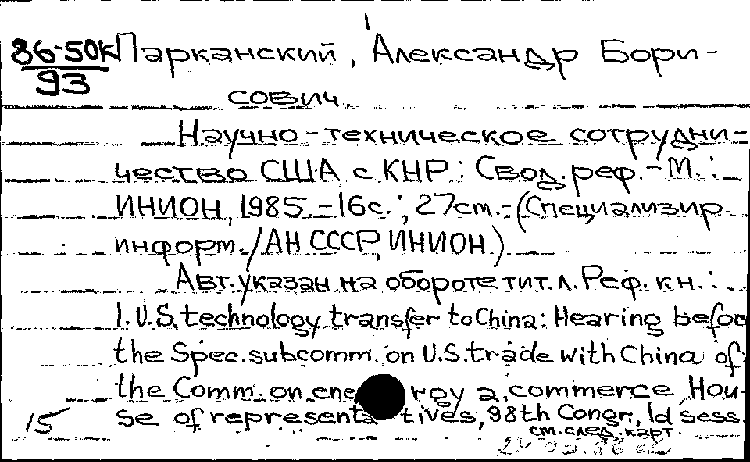 86-50к
93
Парканский, Александр Бори-
сович.
Научно-техническое сотрудни-
чество США с КНР: Свод. реф.-М.:
ИНИОН, 1985.-16с.; 27см.-(Специализир
информ./АН СССР, ИНИОН.)
Авт. указан на обороте тит. л. Реф. кн.:
1. U.S. technology transfer to China: Hearing befoo
the Spec. subcomm. on U.S. trade with China of
the Comm. on energy a. commerce, Hou-
se of representatives, 98th Congr., Id sess.
см. след. карт.
15